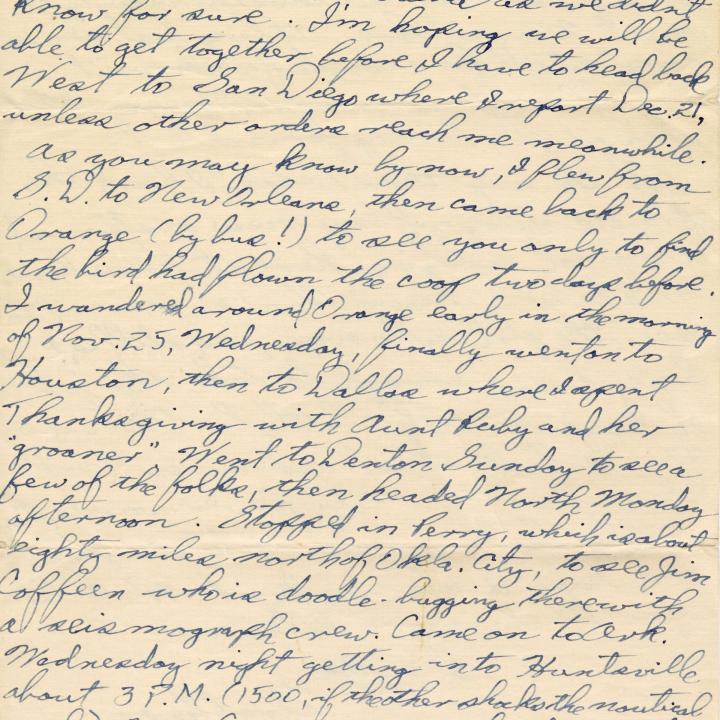 know for sure. I'm hoping we will be
able to get together before I have to head back
West to San Diego where I report Dec. 21,
unless other orders reach me meanwhile.
As you may know by now, I flew from
S.D. to New Orleans, then came back to
Orange (by bus!) to see you only to find
the bird had flown the coop two days before.
I wandered around Orange early in the morning
of Nov. 25, Wednesday, finally went on to
Houston, then to Dallas where I spent
Thanksgiving with Aunt Ruby and her
"groaner". Went to Denton Sunday to see a
few of the folks, then headed North Monday
afternoon. Stopped in Perry, which is about
eighty miles north of Okla. City, to see Jim
Coffeen who is doodle-bugging there with
a seismograph crew. Came on to Ark.
Wednesday night getting into Huntsville
about 3 P.M. (1500, if the other shocks the nautical